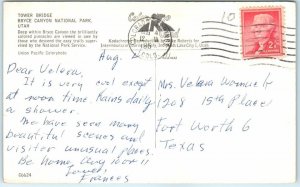 TOWER BRIDGE
BRYCE CANYON NATIONAL PARK,
UTAH
Deep within Bryce Canyon the brilliantly
colored pinnacles are viewed in use by
those who descend the easy trails supervised
by the National Park Service.
Union Pacific Colorphoto
10
2¢
Aug.
Dear Velera,
It is very cool except
at noon time. Rains daily
a shower.
We have seen many
beautiful scenes and
visited unusual places.
Be home, any hour!
Frances
Mrs. Velera Womack
1208 15th Place
Fort Worth 6
Texas